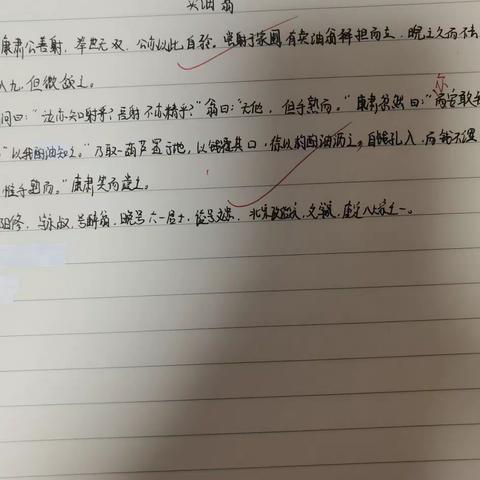 卖油翁
康肃公善射，举世无双，公亦以此自矜。尝射于家圃，有卖油翁释担而立，睨之久而不去
入九，但微颔之。
问曰：“汝亦知射乎？吾射不亦精乎？”翁曰：“无他，但手熟而。”康肃忿然曰：“而安敢轻
尔
“以我酌油知之。”乃取一葫芦置于地，以钱覆其口，徐以杓酌油沥之，自钱孔入，而钱不湿
惟手熟而。”康肃笑而遣之。
阳修，字永叔，号醉翁，晚号六一居士，谥号文忠，北宋政治家，文学家，唐宋八大家之一。